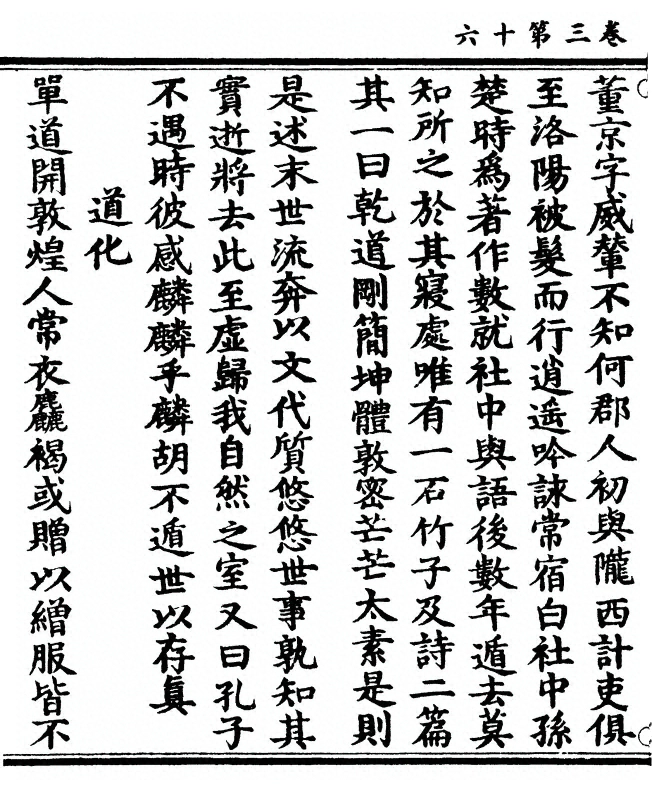 卷三第十六
董京字威輦不知何郡人初與隴西計吏俱
至洛陽被髮而行逍遥吟詠常宿白社中孫
楚時爲著作數就社中與語後數年遁去莫
知所之於其寢處唯有一石竹子及詩二篇
其一曰乾道剛簡坤體敦密芒芒太素是則
是述末世流奔以文代質悠悠世事孰知其
實逝將去此至虚歸我自然之室又曰孔子
不遇時彼感麟麟乎麟胡不遁世以存眞
道化
單道開敦煌人常衣麤褐或贈以繒服皆不